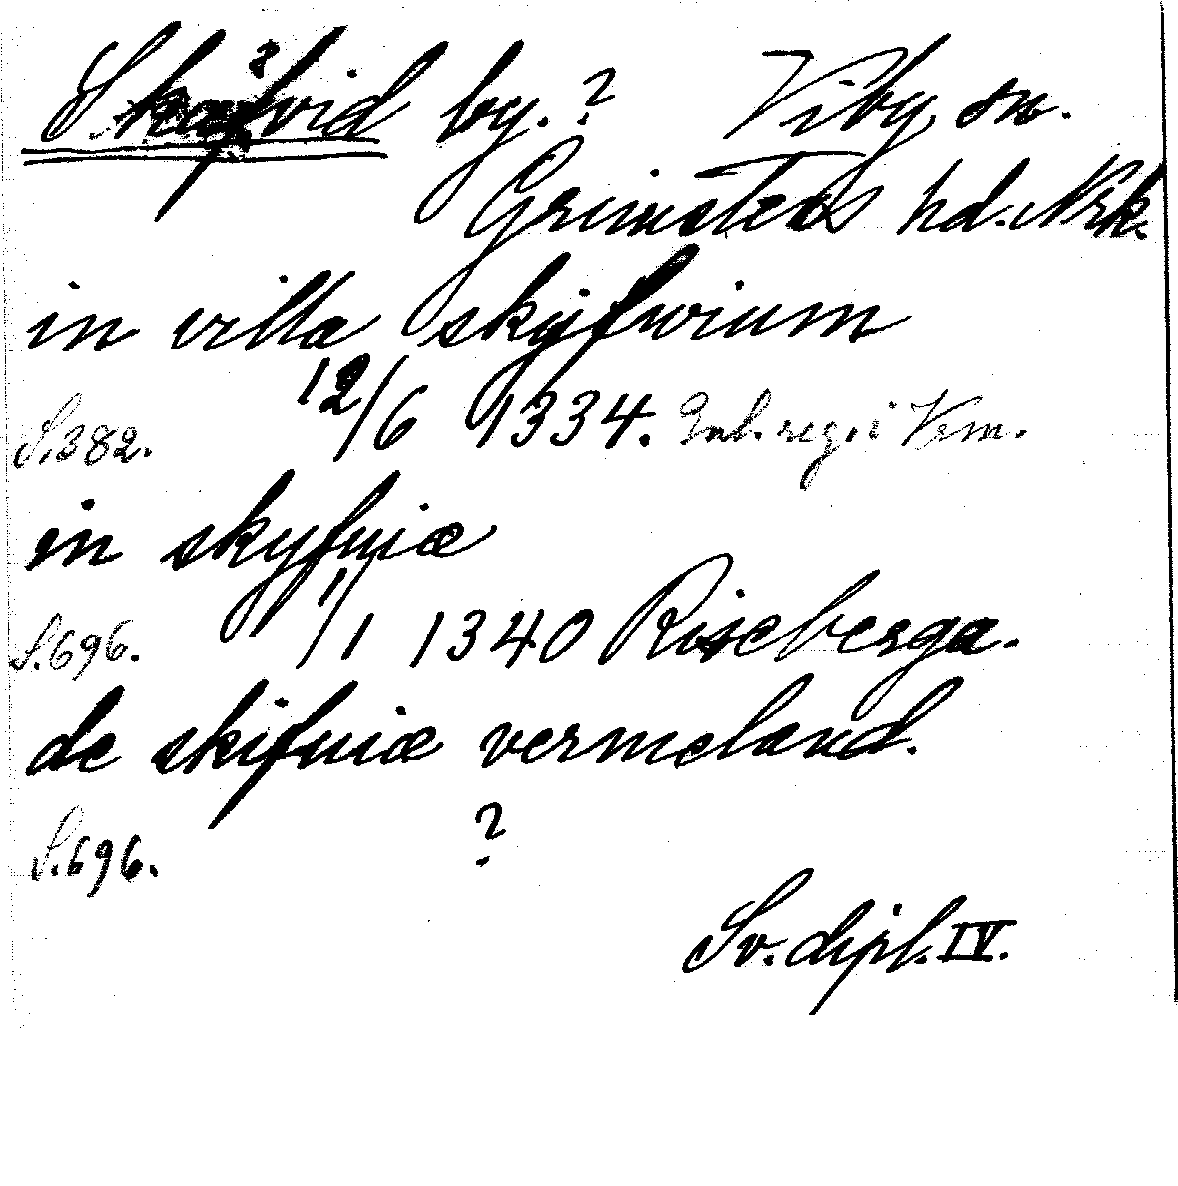 Skäfvid by. ? Viby sn.
Grimstens hd. Nrk.
in villa skyfwium
S. 382. 12/6 1334. Enl. reg. i Verm.
in skyfuiæ
S. 696. 1/1 1340 Riseberga.
de skifuiæ vermeland.
S. 696. ?
Sv. dipl. IV.